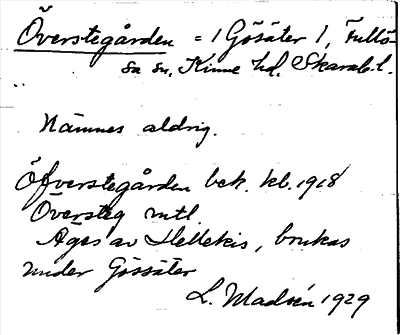 Överstegården = 1 Gössäter 1, Fullö-
sa sn, Kinne hd, Skarab. l.
Nämnes aldrig.
Öfverstegården bek. kb. 1918
Översteg mtl.
Äges av Hellekis, brukas
under Gössäter
L. Madsén 1929